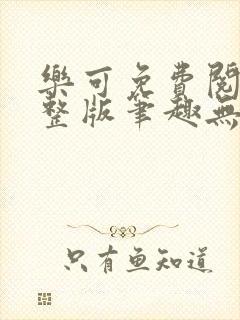 樂可免費閱
整版筆趣無
只有魚知道